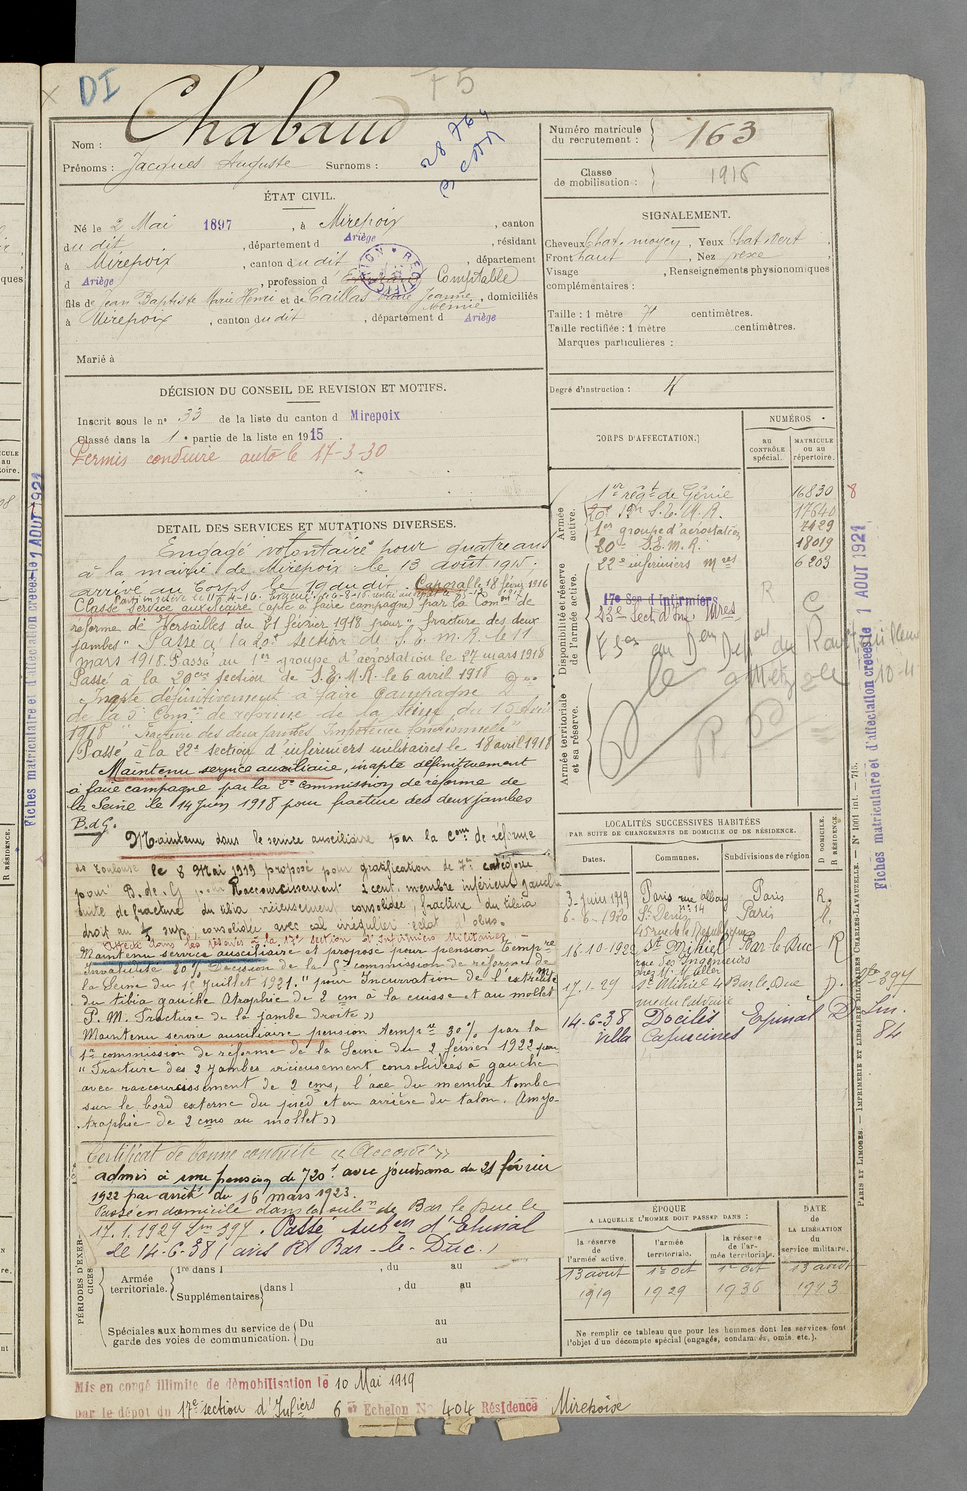 DI
75
Nom : Chabaud
Prénoms : Jacques Auguste Surnoms :
28 764
Numéro matricule du recrutement : 163
Classe de mobilisation : 1915
ÉTAT CIVIL.
Né le 2 Mai 1897, à Mirepoix, canton
dudit, département d Ariège, résidant
à Mirepoix, canton dudit, département
d Ariège, profession d Comptable
fils de Jean Baptiste Marie Henri et de Caillas Jeanne, domiciliés
à Mirepoix, canton dudit, département d Ariège
Marié à
SIGNALEMENT.
Cheveux Chat. moyen, Yeux Chat Vert
Front haut, Nez
Visage , Renseignements physionomiques
complémentaires :
Taille : 1 mètre 71 centimètres.
Taille rectifiée : 1 mètre centimètres.
Marques particulières :
Degré d'instruction :
DÉCISION DU CONSEIL DE REVISION ET MOTIFS.
Inscrit sous le n° 33 de la liste du canton d Mirepoix
Classé dans la 1e partie de la liste en 1915.
Permis conduire auto le 17-3-30
DETAIL DES SERVICES ET MUTATIONS DIVERSES.
Engagé volontaire pour quatre ans
à la mairie de Mirepoix le 13 août 1915.
arrivé au Corps le 19 dudit. Caporal le 18 févr 1916
Classé service auxiliaire (apte à faire campagne) par la Com.on de
reforme de Versailles du 21 février 1918 pour "fracture des deux
jambes". Passé à la 20e section de S.E.M.R. le 11
mars 1918. Passé au 1er groupe d'aérostation le 27 mars 1918
Passé à la 20eme section de S.E.M.R. le 6 avril 1918
Inapte définitivement à faire campagne
de la 3e Com.on de reforme de la Seine du 15 avril
1918 "Fracture des deux jambes impotence fonctionnelle"
Passé à la 22e section d'infirmiers militaires le 18 avril 1918
Maintenu service auxiliaire, inapte définitivement
à faire campagne par la 2e commission de réforme de
la Seine le 14 juin 1918 pour fracture des deux jambes
B.d.G.
Maintenu dans le service auxiliaire par la Com. de réforme
de Toulouse le 8 Mai 1919 proposé pour gratification de 7e catégorie
pour B. de G. Raccourcissement 1 cent. membre inférieur gauche
suite de fracture du tibia vicieusement consolidée, fracture du tibia
droit au 1/3 sup. consolidée avec cal irrégulier
Affecté dans les réserves à la 17e section d'Infirmiers Militaires
Maintenu service auxiliaire et proposé pour pension temp.re
Invalidité 20% Décision de la commission de réforme de
la Seine du 1er Juillet 1921. "pour Incurvation de l'extrémité
du tibia gauche Atrophie de 2 cm à la cuisse et au mollet
P.M. Fracture de la jambe droite"
Maintenu service auxiliaire pension temp.re 20% par la
1re commission de réforme de la Seine du 2 février 1922 pour
"Fracture des 2 jambes vicieusement consolidées à gauche
avec raccourcissement de 2 cms, l'axe du membre tombe
sur le bord externe du pied et en arrière du talon. Amyo-
trophie de 2 cms au mollet"
Certificat de bonne conduite "Accordé"
admis à une pension de 720f avec jouissance du 21 février
1922 par arrêté du 16 mars 1923.
Passé en domicile dans la subon de Bar le Duc le
17.1.1929 Lin 397. Passé subon d'Epinal
le 14-6-38 (avis Rt Bar-le-Duc.)
PÉRIODES D'EXERCICES
Armée territoriale.
1re dans l , du au
Supplémentaires dans l , du au
Spéciales aux hommes du service de garde des voies de communication.
Du au
Du au
CORPS D'AFFECTATION.
NUMÉROS
AU CONTRÔLE SPÉCIAL.
MATRICULE OU AU RÉPERTOIRE.
Armée active.
1er régt de Génie 16830
20e S.E.M.R. 17640
1er groupe d'aérostation 2129
20e S.E.M.R. 18019
22e infirmiers mres 6203
Disponibilité et réserve de l'armée active.
17e Son d'Infirmiers
23e Sect d'Inf. Mres
Armée territoriale et sa réserve.
LOCALITÉS SUCCESSIVES HABITÉES
PAR SUITE DE CHANGEMENTS DE DOMICILE OU DE RÉSIDENCE.
Dates. Communes. Subdivisions de région. D DOMICILE. R RÉSIDENCE.
3 Juin 1919 Paris Paris R.
St Denis Paris R.
16.10.1922 St Mihiel Bar le Duc R
rue des Ingénieurs
17.1.29 St Mihiel Bar le Duc D. 397
rue du Calvaire
14-6-38 Docelles Epinal D Lin. 84
Villa Capucines
ÉPOQUE
A LAQUELLE L'HOMME DOIT PASSER DANS :
la réserve de l'armée active. l'armée territoriale. la réserve de l'armée territoriale.
DATE DE LA LIBÉRATION du service militaire.
13 août 1919 1er Oct 1929 1er Oct 1936 13 août 1943
Ne remplir ce tableau que pour les hommes dont les services font l'objet d'un décompte spécial (engagés, condamnés, omis, etc.).
Mis en congé illimité de démobilisation le 10 Mai 1919
par le dépôt du 17e section d'Infiers 6e Echelon N° 404 Résidence Mirepoix
Fiches matriculaire et d'affectation créées le 1 AOUT 1921
Fiches matriculaire et d'affectation créées le 1 AOUT 1921
PARIS ET LIMOGES. — IMPRIMERIE ET LIBRAIRIE MILITAIRES CHARLES-LAVAUZELLE. — N° 1001 int. — 715.